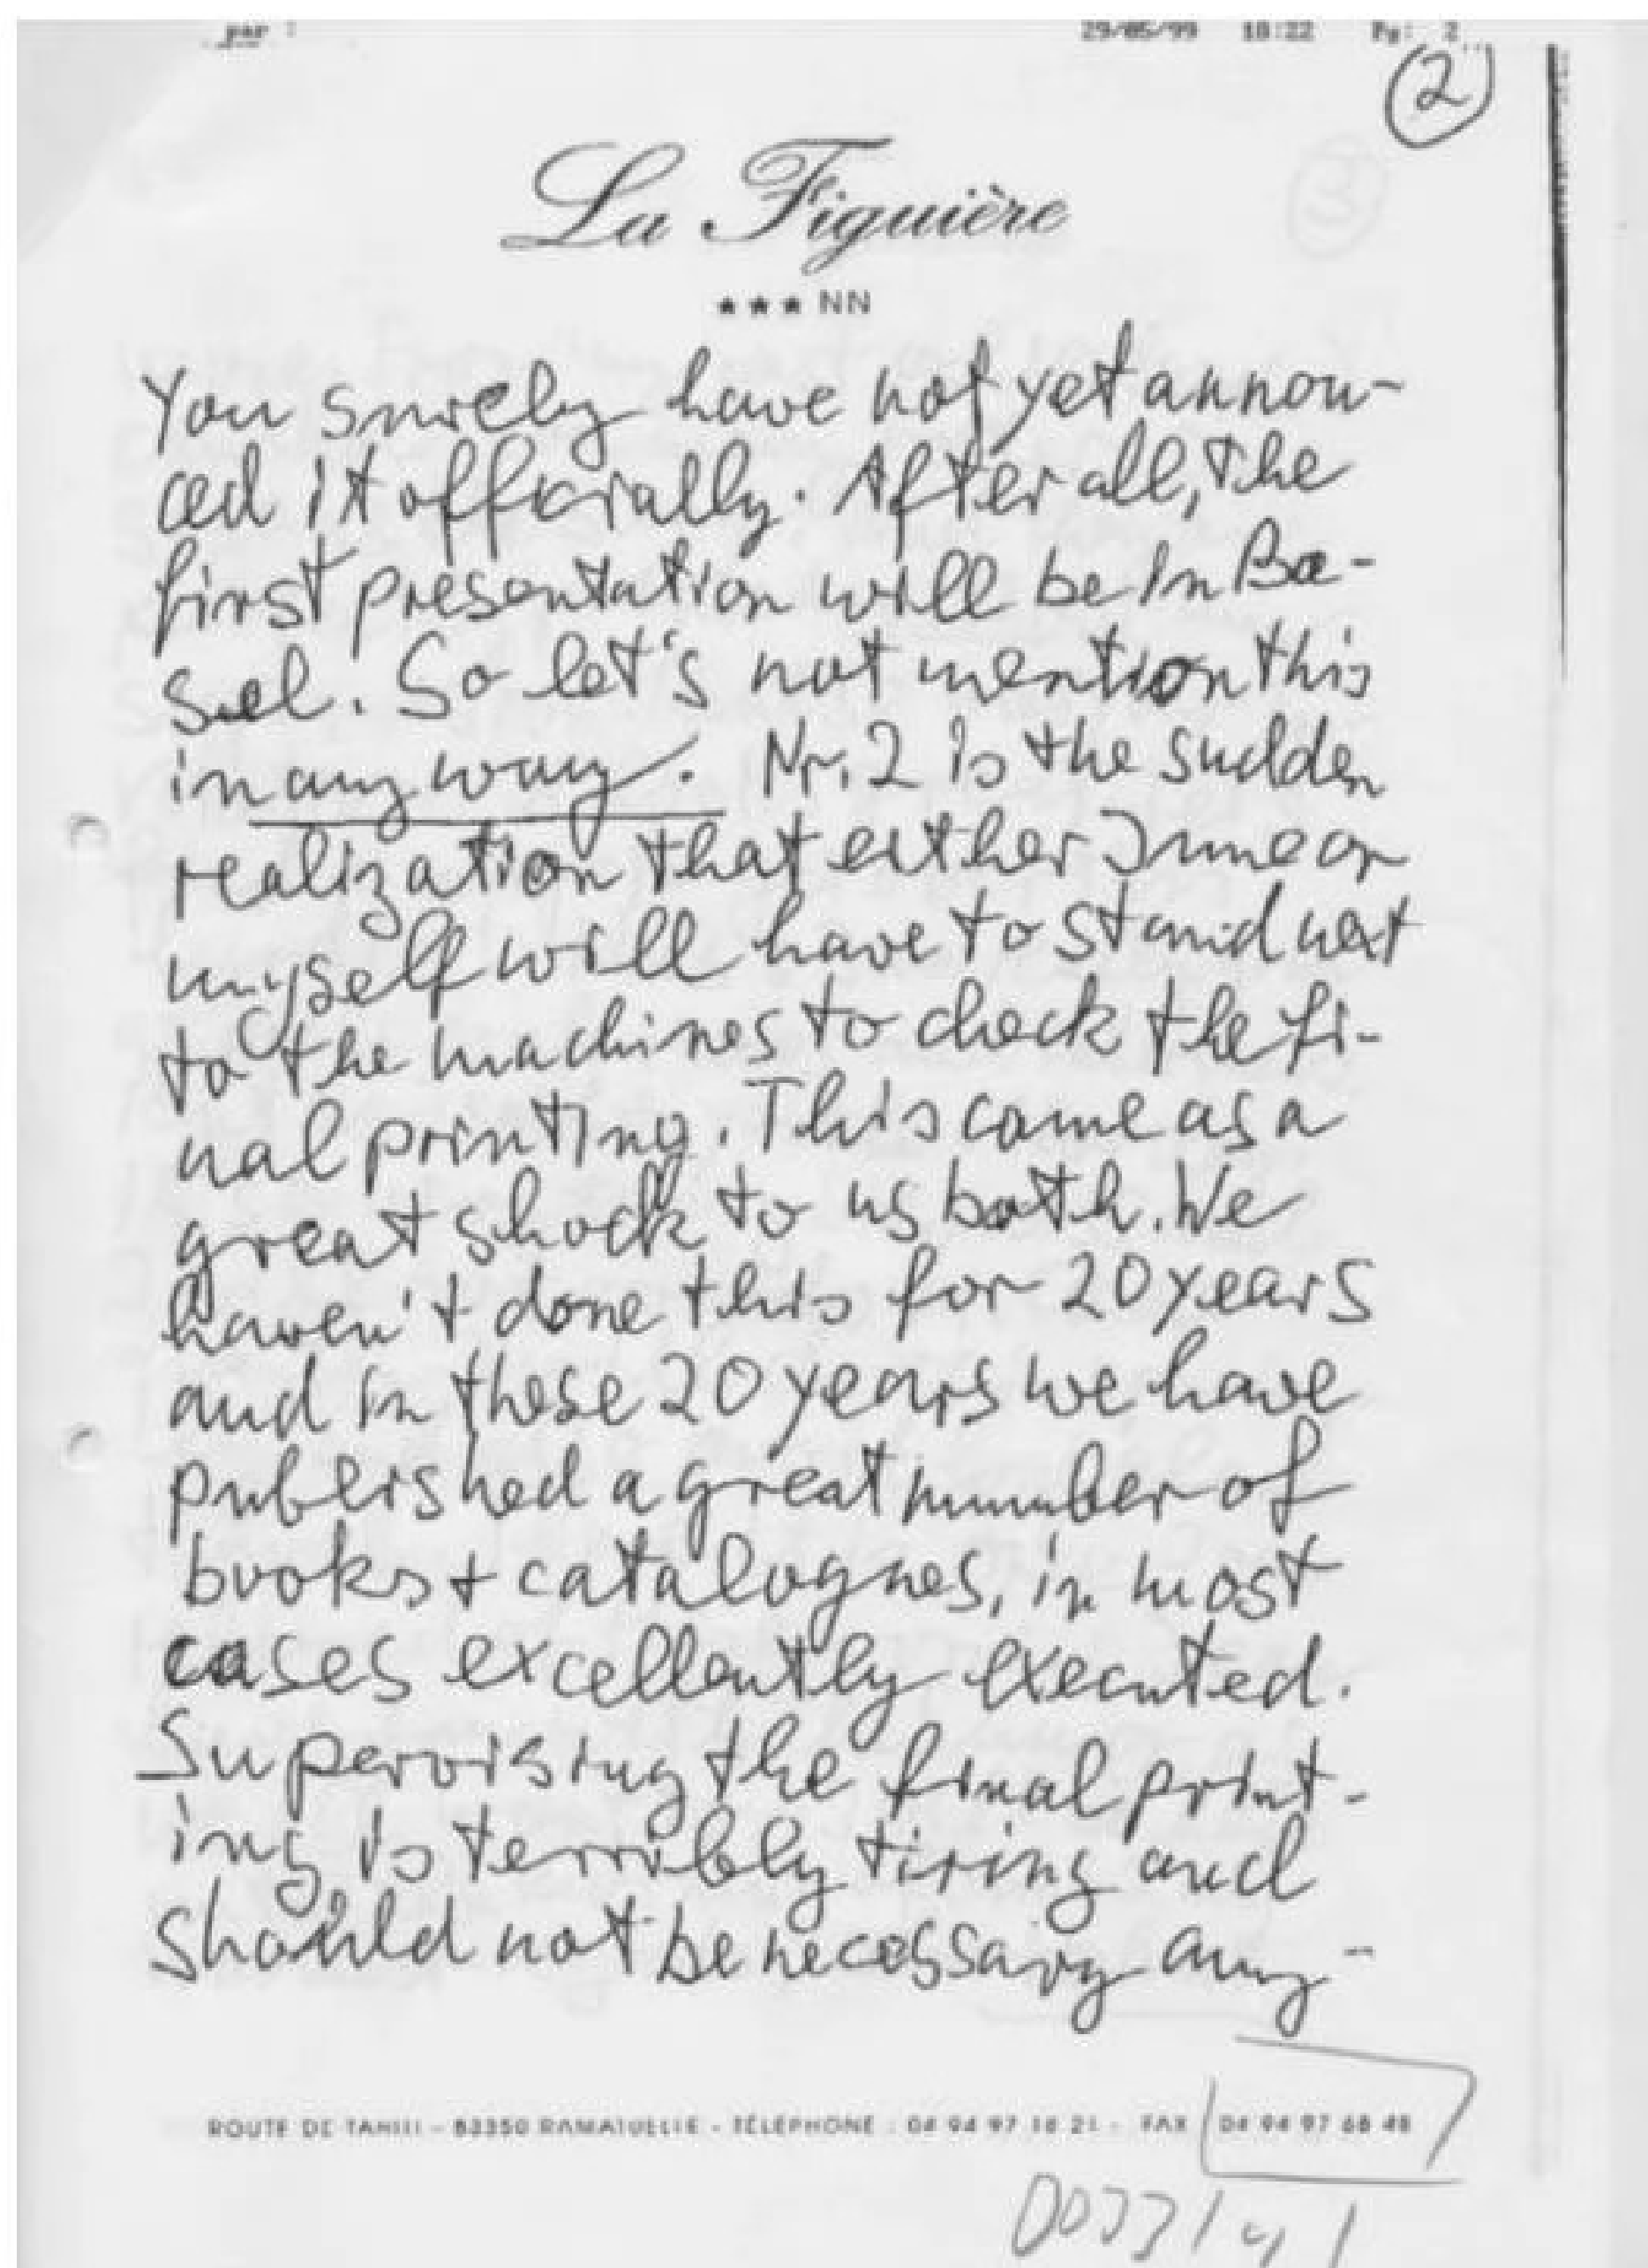 par :
29/05/99 18:22 Pg: 2
2
La Figuière
★★★ NN
You surely have not yet annou-
ced it officially. After all, the
first presentation will be in Ba-
sel. So let's not mention this
in any way. Nr. 2 is the sudden
realization that either June or
myself will have to stand next
to the machines to check the fi-
nal printing. This came as a
great shock to us both. We
haven't done this for 20 years
and in these 20 years we have
published a great number of
books + catalogues, in most
cases excellently executed.
Supervising the final print-
ing is terribly tiring and
should not be necessary any-
ROUTE DE TAHITI - 83350 RAMATUELLE - TÉLÉPHONE : 04 94 97 18 21 - FAX 04 94 97 68 48